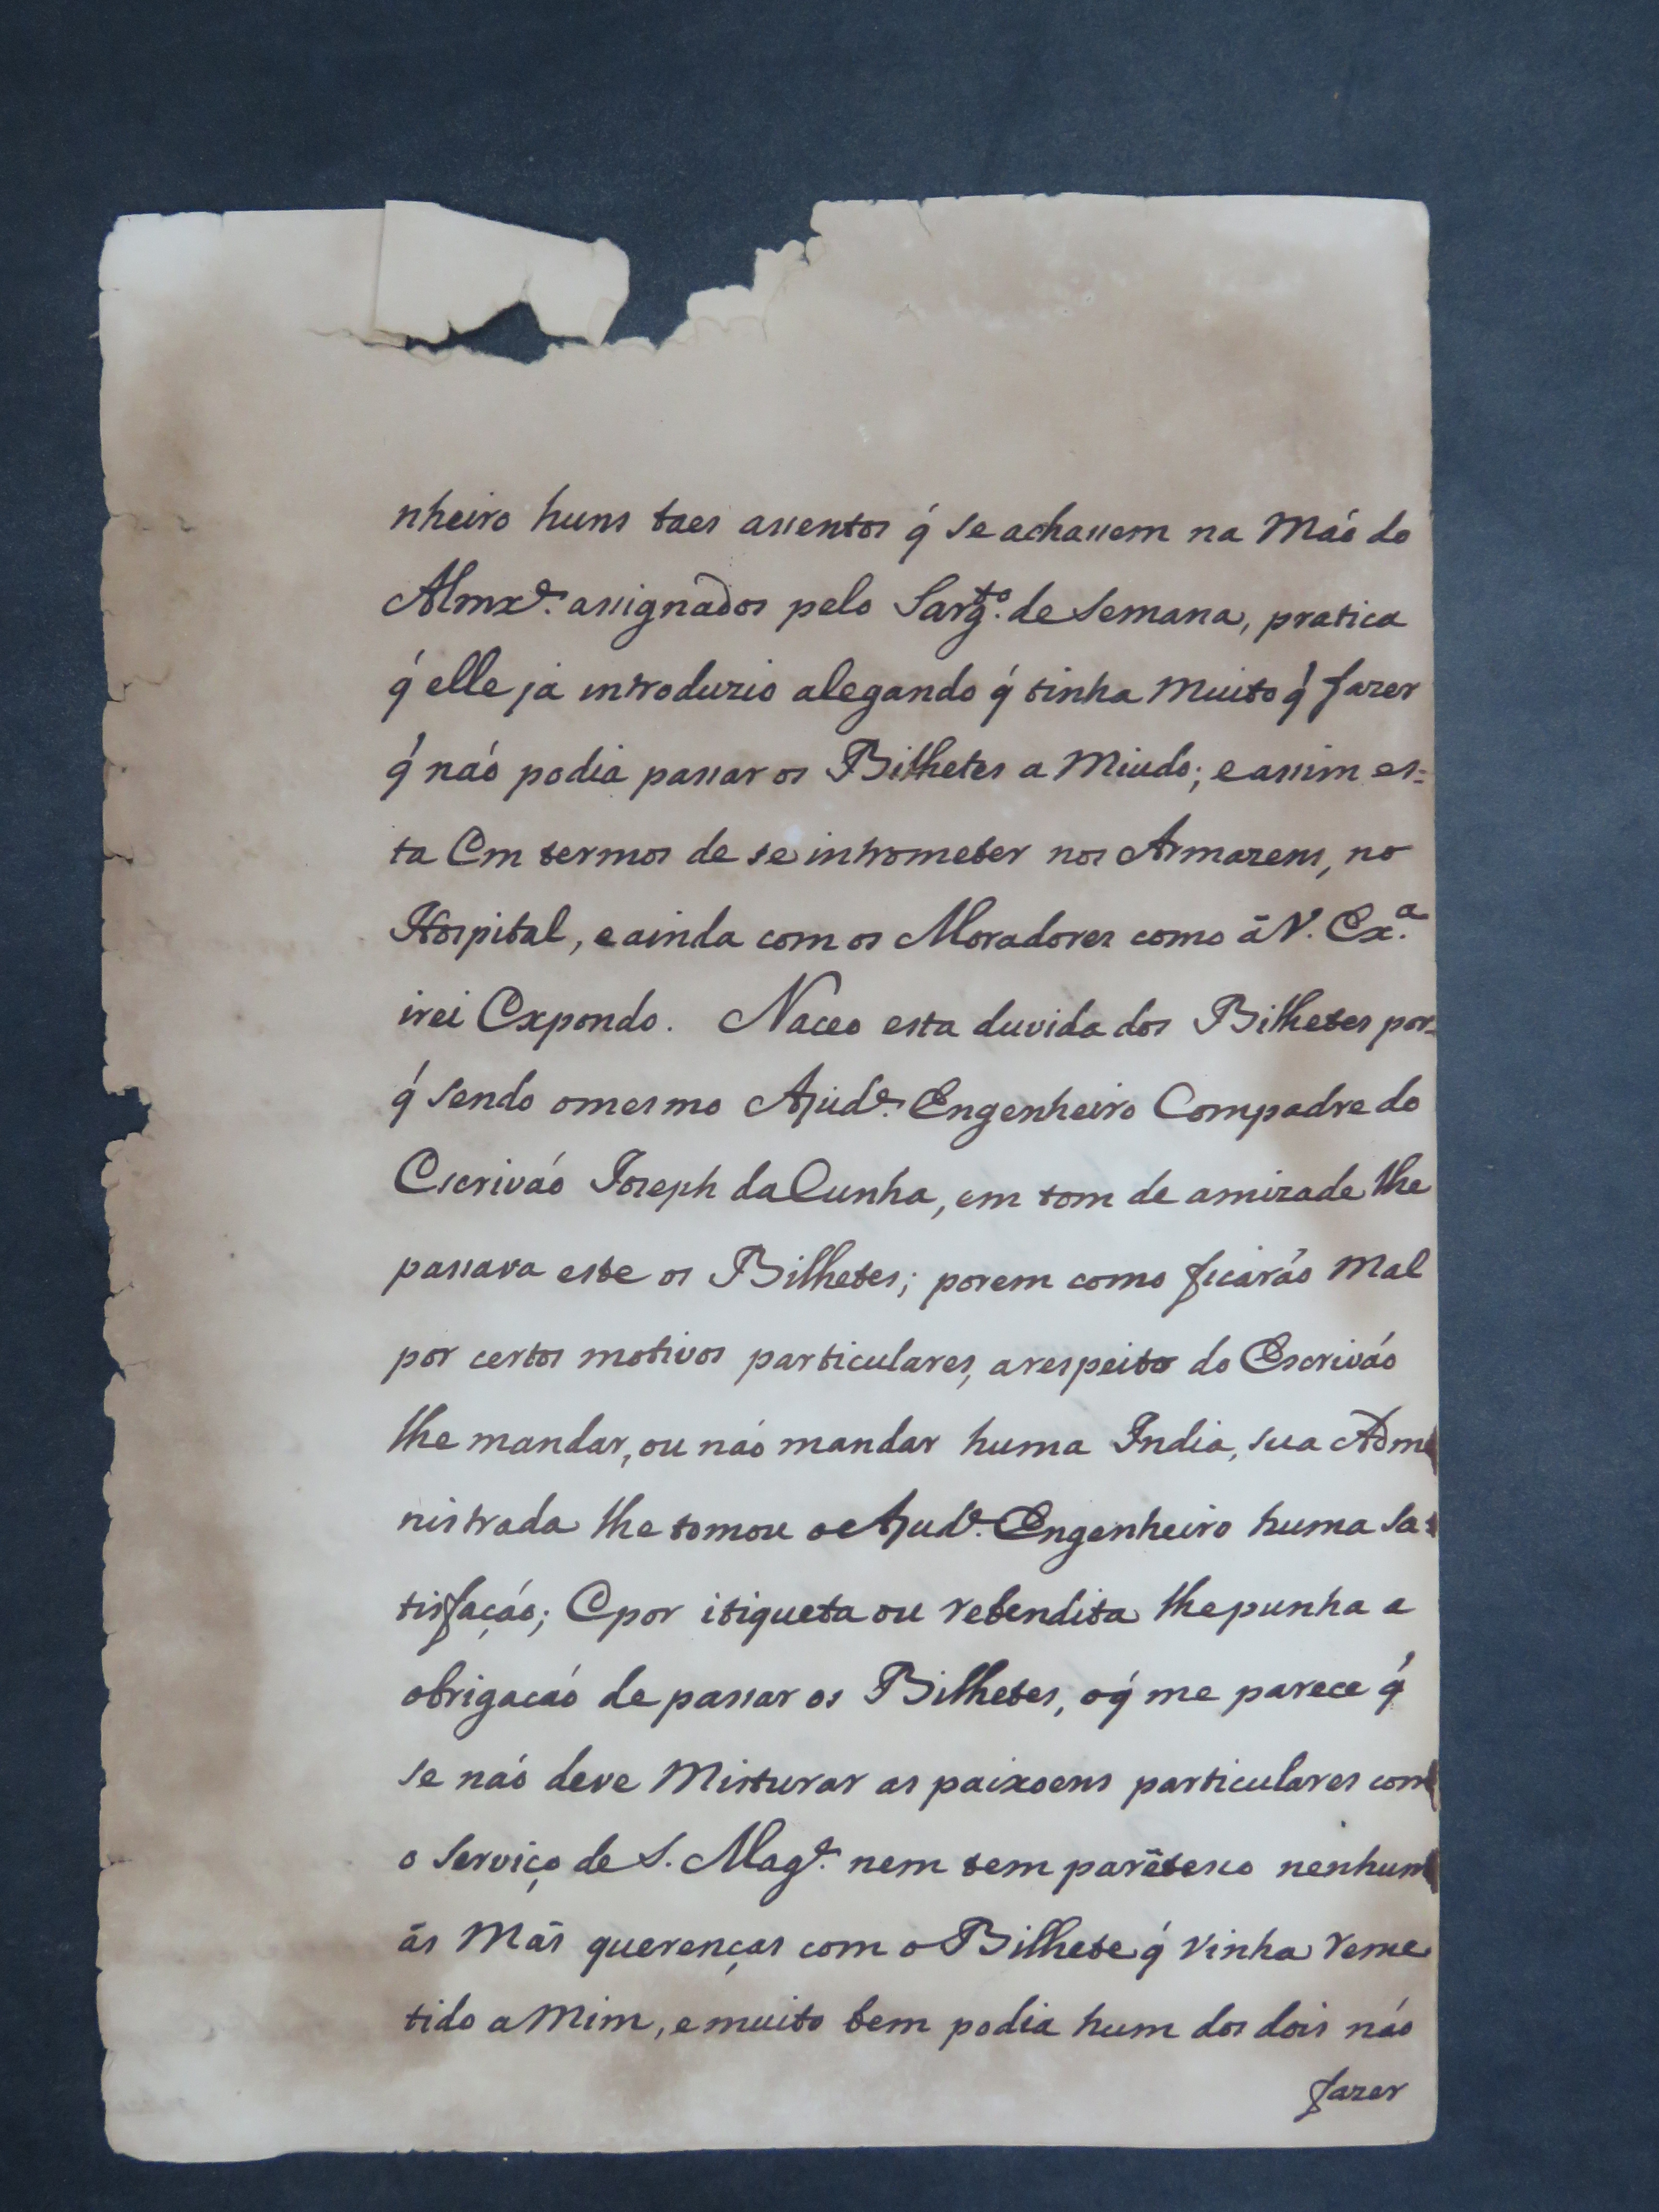 nheiro huns taes assentos q́ se achassem na Maó do
Almxe. assignados pelo Sargto. de Semana, pratica
q́ elle ja introduzio alegando q́ tinha Muito q́ fazer
q́ naó podia passar os Bilhetes a Miudo; e assim es=
ta Em termos de se intrometer nos Armazens, no
Hospital, e ainda com os Moradores como ā V. Exa.
irei Expondo. Naceo esta duvida dos Bilhetes por=
q́ sendo omesmo Ajude. Engenheiro Compadre do
Escriváo Joseph da Cunha, em tom de amizade lhe
passava este os Bilhetes; porem como ficaráo Mal
por certos motivos particulares, arespeito do Escriváo
lhe mandar, ou naó mandar huma India, sua Adme
nistrada lhe tomou o Ajude. Engenheiro huma sa=
tisfaçáo; E por itiqueta ou retendita lhe punha a
obrigacaó de passar os Bilhetes, oq́ me parece q́
se naó deve Misturar as paixoens particulares com
o Serviço de S. Mage. nem tem parētesco nenhum
ās Mās querenças com o Bilhete q́ vinha reme
tido a Mim, e muito bem podia hum dos dois náo
fazer